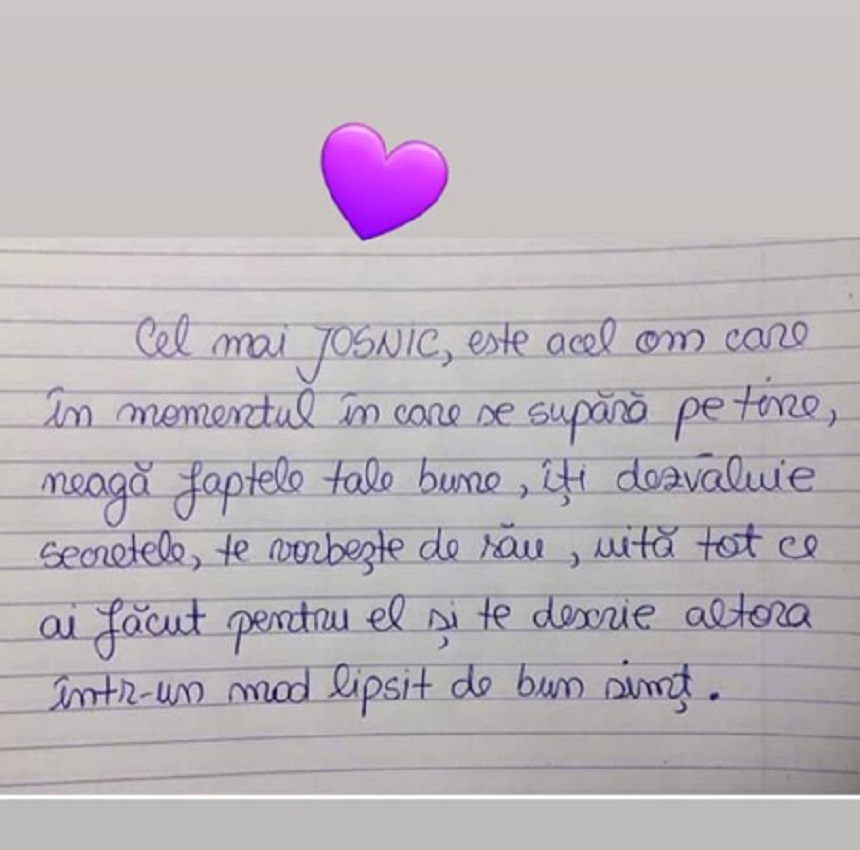 Cel mai JOSNIC, este acel om care
în momentul în care se supără pe tine,
neagă faptele tale bune, îți dezvăluie
secretele, te vorbește de rău, uită tot ce
ai făcut pentru el și te descrie altora
într-un mod lipsit de bun simț.